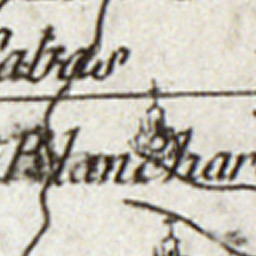 abas
Blanchar